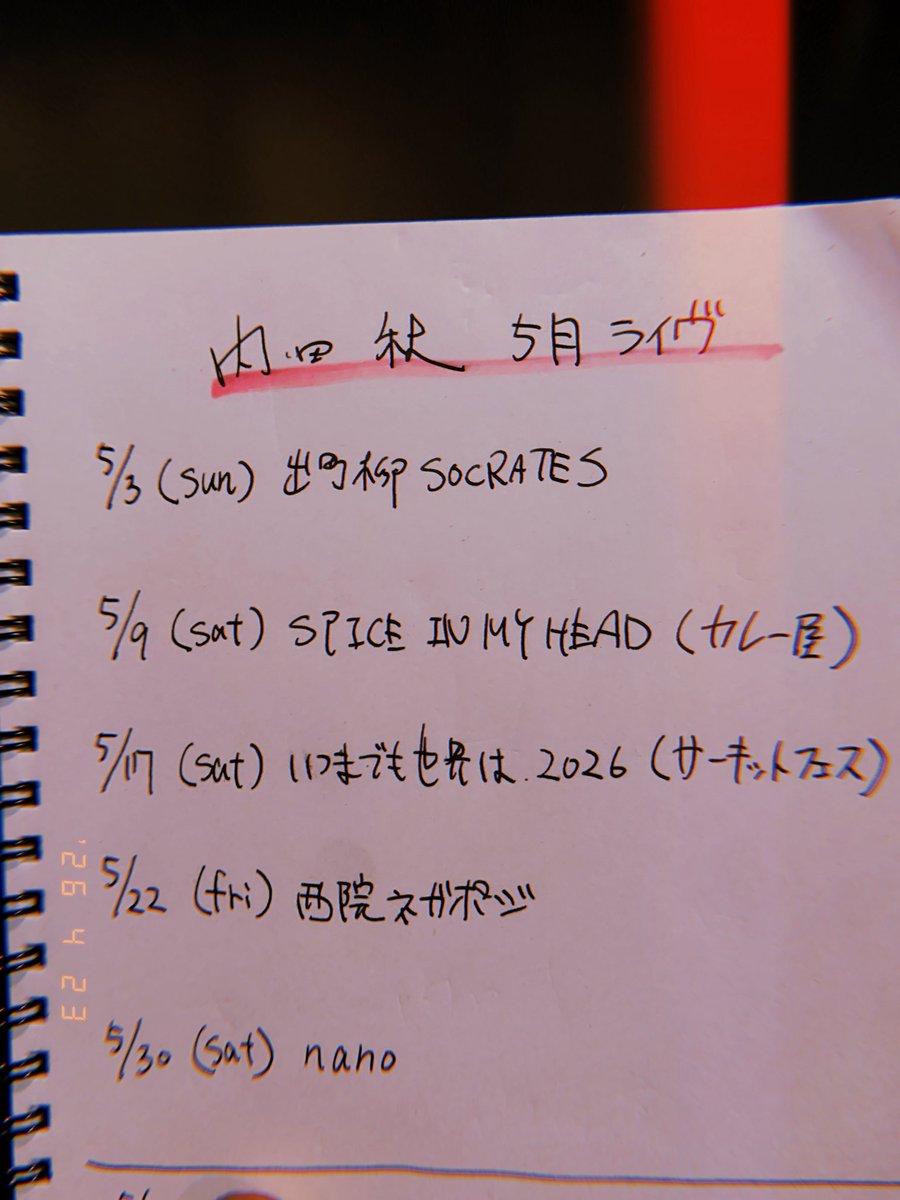 内田 秋 5月 ライヴ
5/3 (sun) 出町柳 SOCRATES
5/9 (sat) SPICE IN MY HEAD (カレー屋)
5/17 (sat) いつまでも世界は.2026 (サーキットフェス)
5/22 (fri) 西院ネガポジ
5/30 (sat) nano
'26 4 23